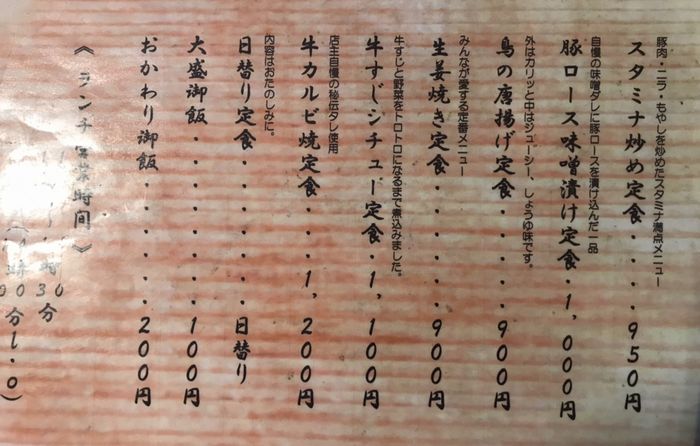 豚肉・ニラ・もやしを炒めたスタミナ満点メニュー
スタミナ炒め定食・・・・950円
自慢の味噌ダレに豚ロースを漬け込んだ一品
豚ロース味噌漬け定食・1,000円
外はカリッと中はジューシー、しょうゆ味です。
鳥の唐揚げ定食・・・・900円
みんなが愛する定番メニュー
生姜焼き定食・・・・・900円
牛すじと野菜をトロトロになるまで煮込みました。
牛すじシチュー定食・1,100円
店主自慢の秘伝タレ使用
牛カルビ焼定食・・・1,200円
内容はおたのしみに。
日替り定食・・・・・・日替り
大盛御飯・・・・・・・100円
おかわり御飯・・・・・・200円
《ランチ営業時間》
時30分